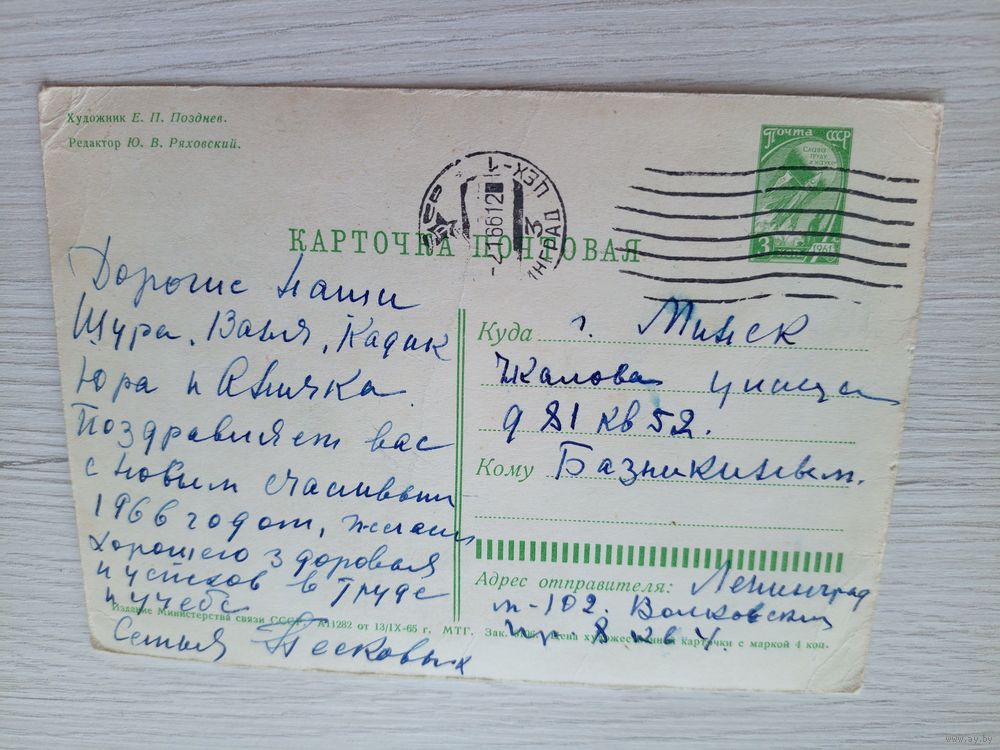 Художник Е. П. Позднев.
Редактор Ю. В. Ряховский.
Почта СССР
Слава труду и науке
3 коп 1961
ЦЕХ-1
КАРТОЧКА ПОЧТОВАЯ
Дорогие наши
Шура, Ваня, Кадик
Юра и Анничка.
Поздравляем вас
с новым счасливым
1966 годом, желаем
хорошего здоровья
и успехов в труде
и учебе
Семья Песковых
Куда г. Минск
Чкалова улица
д 81 кв 52.
Кому Базникиным.
Адрес отправителя: Ленинград
м-102. Волковский
пр 8 кв 4.
Издание Министерства связи СССР. А11282 от 13/IX-65 г. МТГ. Зак. Цена художественной карточки с маркой 4 коп.
www.ay.by